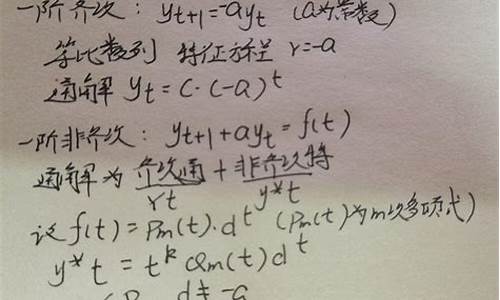 一阶齐次： yt+1=-ayt （a为常数）
等比数列 特征方程 r=-a
通解 yt=C·(-a)^t
一阶非齐次： yt+1+ayt=f(t)
通解为 齐次通+非齐次特
Yt y*t
设f(t)=Pm(t)·d^t （Pm(t)为m次多项式）
y*t=t^k Qm(t)d^t
d≠-a